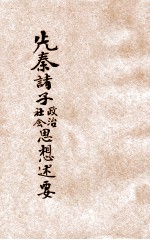 先秦諸子政治社会思想述要